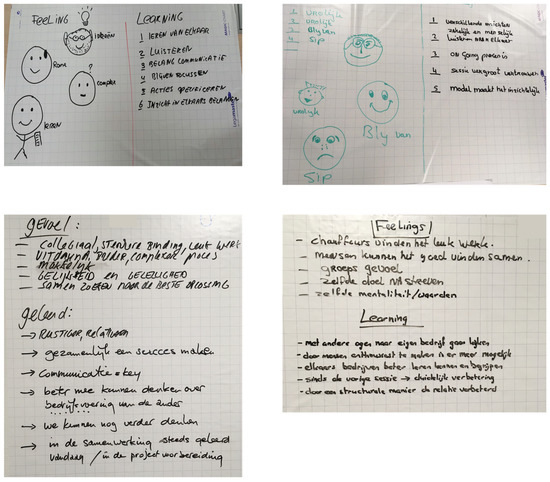 FEELING
LEARNING
IDEEËN
RARE
COMPLEX
LEREN
1 LEREN VAN ELKAAR
2 LUISTEREN
3 BELANG COMMUNICATIE
4 BLIJVEN FOCUSSEN
5 ACTIES SPECIFICEREN
6 INZICHT IN ELKAARS BELANGEN
1 vrolijk
2 vrolijk
3 Blij van
4 Sip
vrolijk
Blij van
Sip
1 verschillende inzichten
zakelijk en menselijk
2 luisteren naar elkaar
3 ON Going proces is
4 sessie vergroot vertrouwen
5 model maakt het inzichtelijk
gevoel:
— collegiaal, sterkere binding, leuk werk
— UITDAGEND, complexer proces
— makkelijk
— GELIJKHEID en
— SAMEN ZOEKEN NAAR DE BESTE OPLOSSING
geleerd:
→ RUSTIGER,
→ gezamenlijk een succes maken
→ Communicatie = key
→ beter mee kunnen denken over
bedrijfsvoering van de ander
→ we kunnen nog verder denken
→ in de samenwerking steeds geleerd
vandaag / in de project voorbereiding
Feelings
— chauffeurs vinden het leuk werk.
— mensen kunnen het goed vinden samen.
— groeps gevoel
— zelfde doel nastreven
— zelfde mentaliteit/waarden
Learning
- met andere ogen naar eigen bedrijf gaan kijken
- door mensen enthousiast te maken is er meer mogelijk
- elkaars bedrijven beter leren kennen en begrijpen
- sinds de vorige sessie → duidelijk verbetering
- door een structurele manier de relatie verbeterd